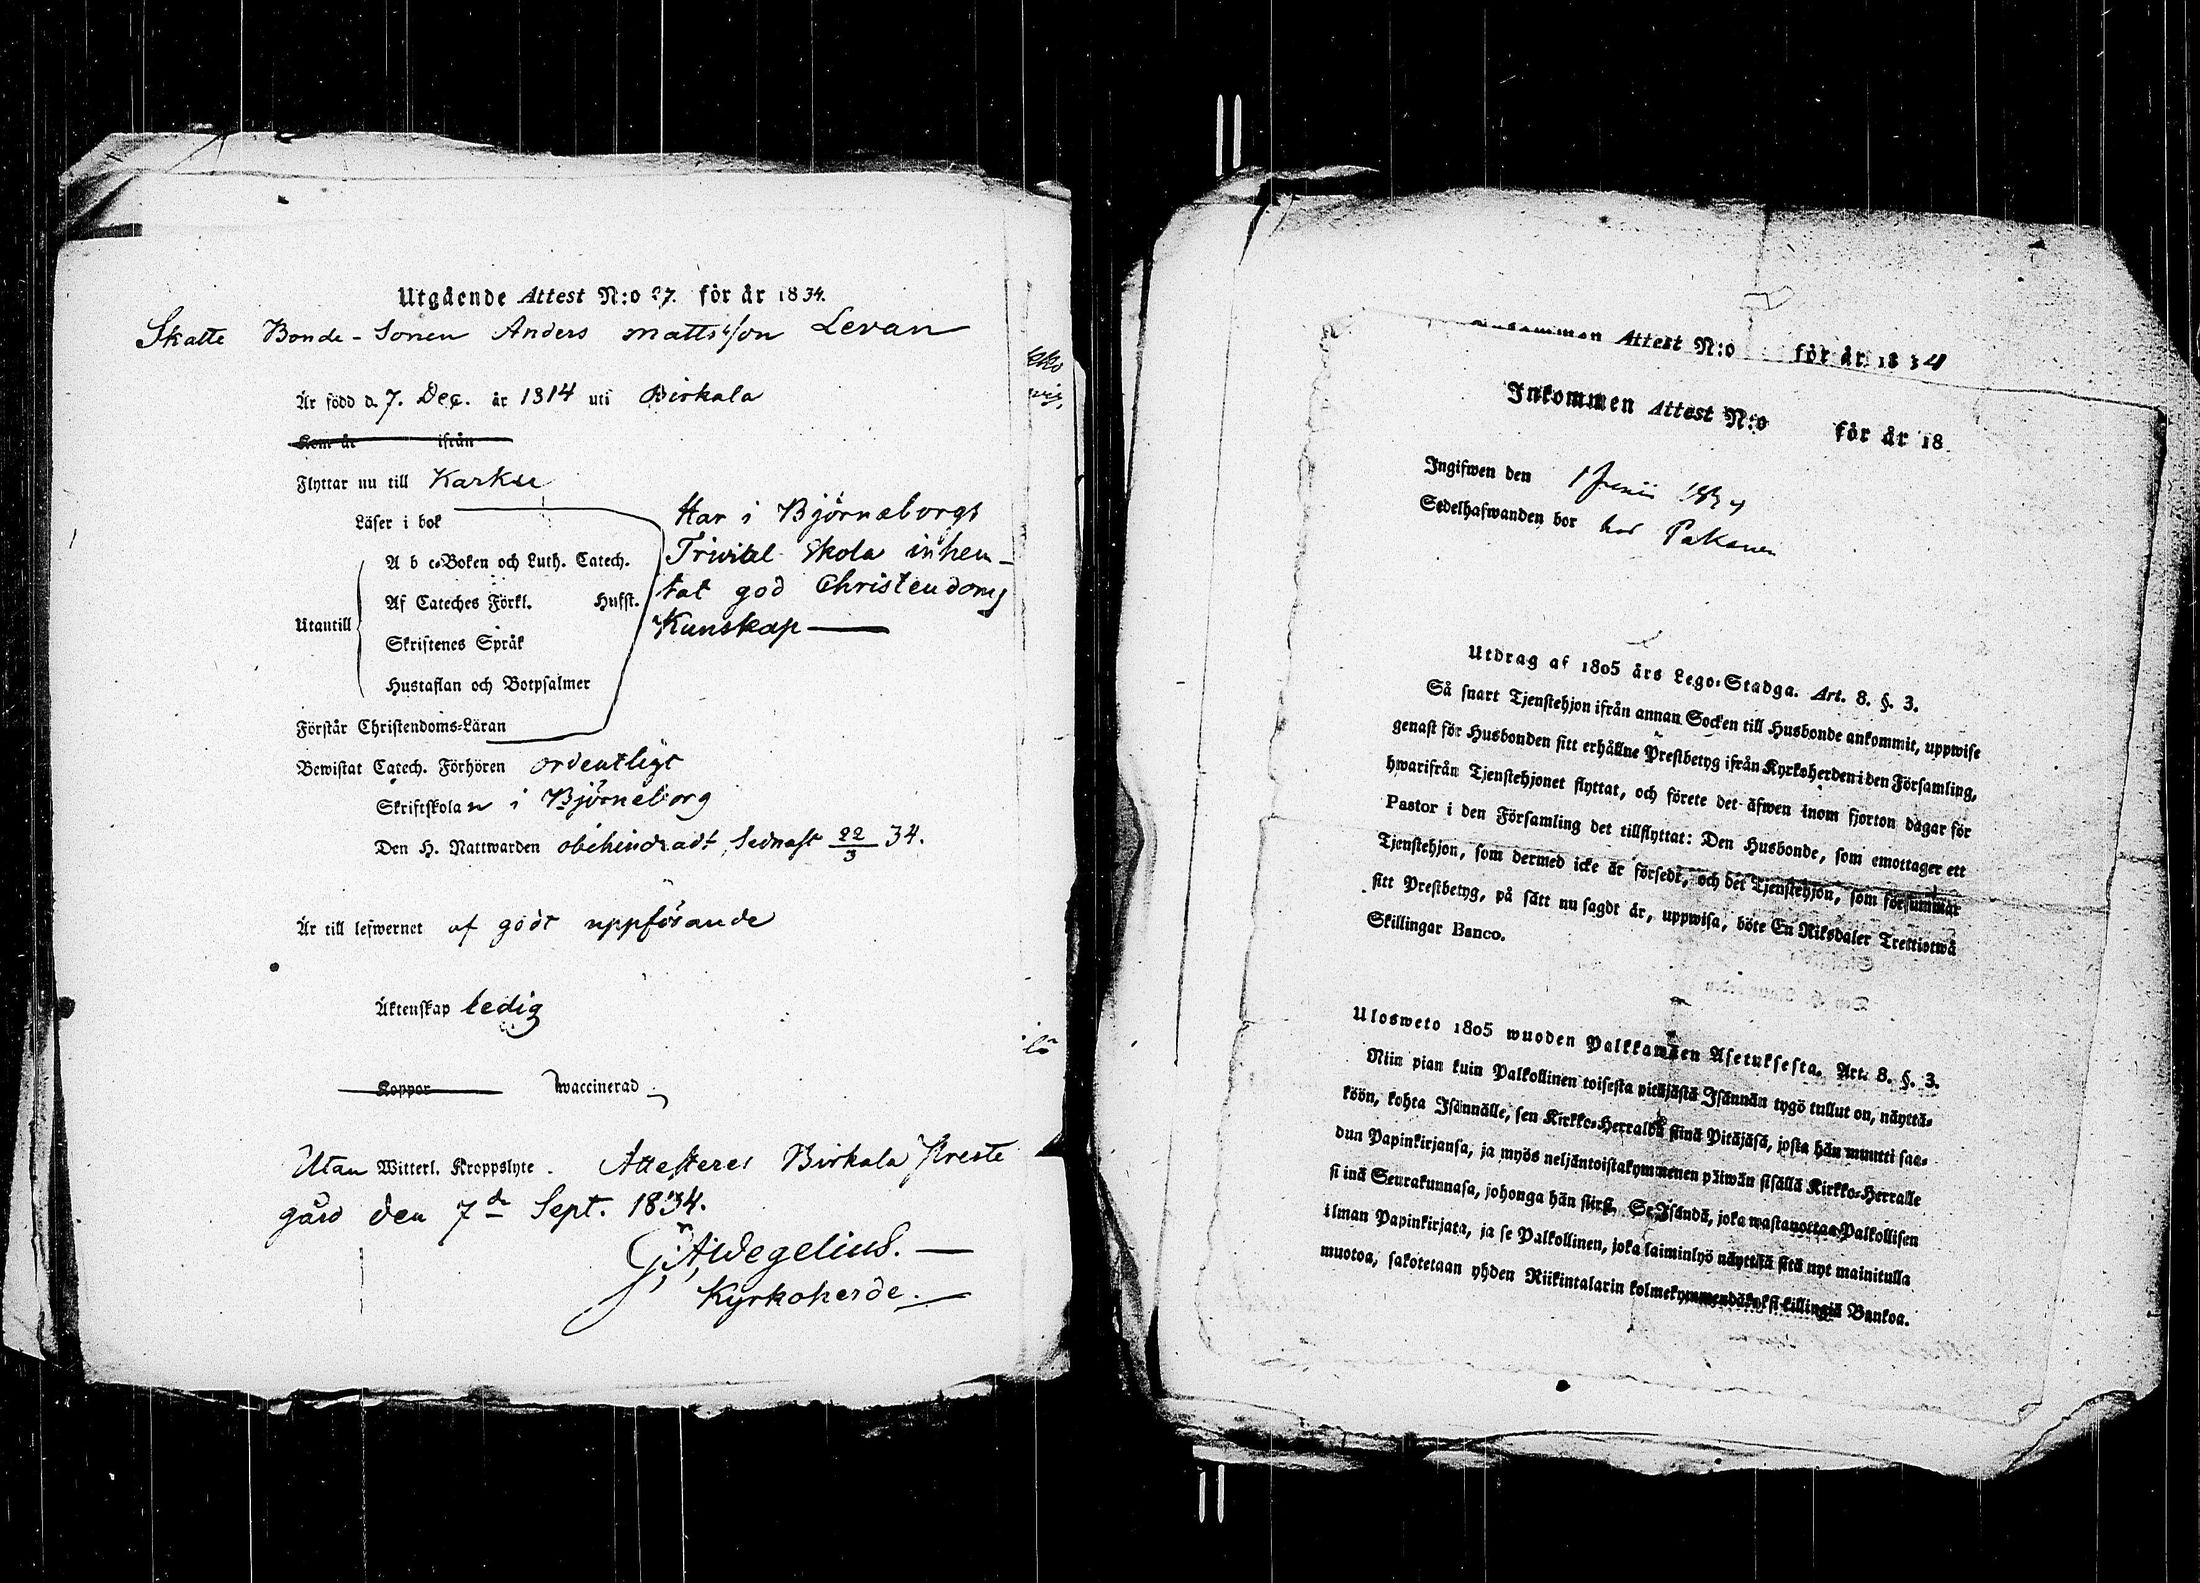 Utgående Attest N:o 27. för år 1834.
Skatte Bonde-Sonen Anders Mattsson Levan
Är född d. 7. Dec. år 1814 uti Birkala
Kom år ifrån
Flyttar nu till Karkku
Läser i bok
Har i Björneborgs
A b c-Boken och Luth. Catech.
Trivial Skola inhem-
Af Cateches Förkl. Hufst.
tat god Christendoms
Utantill
Kunskap
Skriftenes Språk
Hustaflan och Botpsalmer
Förstår Christendoms-Läran
Bewistat Catech. Förhören ordentligt
Skriftskolan i Björneborg
Den H. Nattwarden obehindradt, Sednast 22/3 34.
Är till lefwernet af godt uppförande
Äktenskap ledig
Koppor waccinerad
Utan Witterl. Kroppslyte. Attesterar Birkala Preste
gård den 7de Sept. 1834.
Widegelius.
Kyrkoherde.
Attest N:o för år 1834
Inkommen Attest N:o för år 18
Ingifwen den 1 Junii 1834
Sedelhafwanden bor hos Pakanen
Utdrag af 1805 års Lego-Stadga. Art. 8. §. 3.
Så snart Tjenstehjon ifrån annan Socken till Husbonde ankommit, uppwise
genast för Husbonden sitt erhållne Prestbetyg ifrån Kyrkoherden i den Församling,
hwarifrån Tjenstehjonet flyttat, och förete det äfwen inom fjorton dagar för
Pastor i den Församling det tillflyttat: Den Husbonde, som emottager ett
Tjenstehjon, som dermed icke är försedt, och det Tjenstehjon, som försummar
sitt Prestbetyg, på sätt nu sagdt är, uppwisa, böte En Riksdaler Trettiotwå
Skillingar Banco.
Ulosweto 1805 wuoden Palkkawäen Asetuksesta. Art. 8. §. 3.
Niin pian kuin Palkollinen toisesta pitäjästä Isännän tygö tullut on, näyttä-
köön, kohta Isännälle, sen Kirkko-Herralda siinä Pitäjäsä, josta hän muutti saa-
dun Papinkirjansa, ja myös neljäntoistakymmenen päiwän sisällä Kirkko-Herralle
siinä Seurakunnasa, johonga hän siirsi. Se Isändä, joka wastanottaa Palkollisen
ilman Papinkirjata, ja se Palkollinen, joka laiminlyö näyttää sitä nyt mainitulla
muotoa, sakotetaan yhden Riikintalarin kolmekymmendäkaksi killingiä Bankoa.